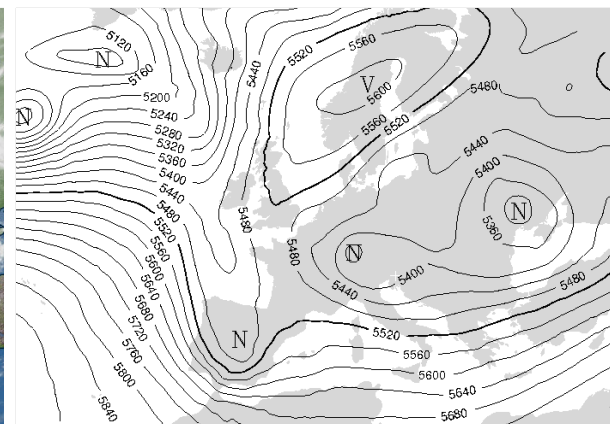 5120
N
5160
5200
5240
5280
5320
5360
5400
5440
5480
5520
5560
5600
5640
5680
5720
5760
5800
5840
N
5440
5520
5560
V
5600
5560
5520
5480
5440
5400
N
5360
5480
5480
N
5440
5400
5480
N
5520
5560
5600
5640
5680